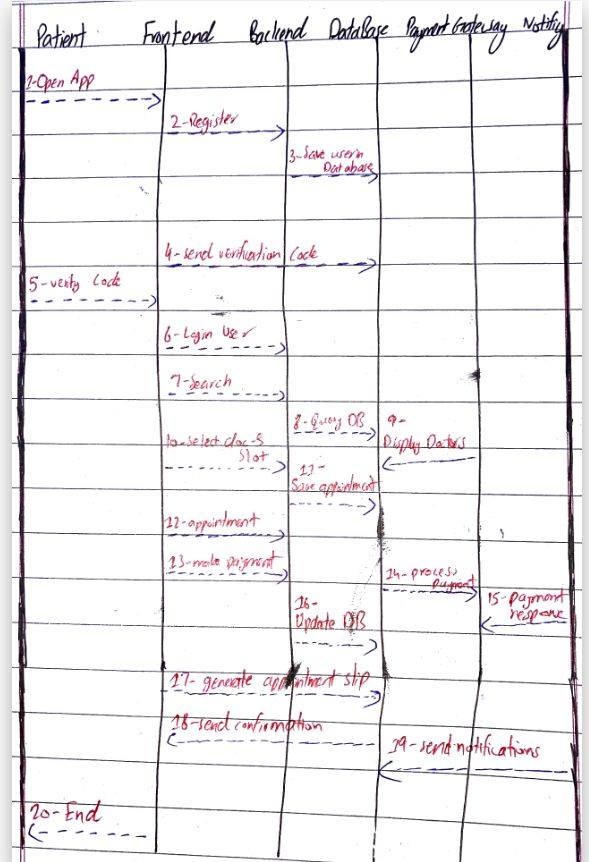 Patient Frontend Backend DataBase Payment Gateway Notify
1-Open App
2-Register
3-Save userin
Database
4-send verification Code
5-verify Code
6-Login User
7-Search
8-Query DB
9-
Display Doctors
10-select doc-S
Slot
11-
Save appointment
12-appointment
13-make payment
14-process
Payment
15-payment
response
16-
Update DB
17- generate appointment slip
18-send confirmation
19-send notifications
20-End